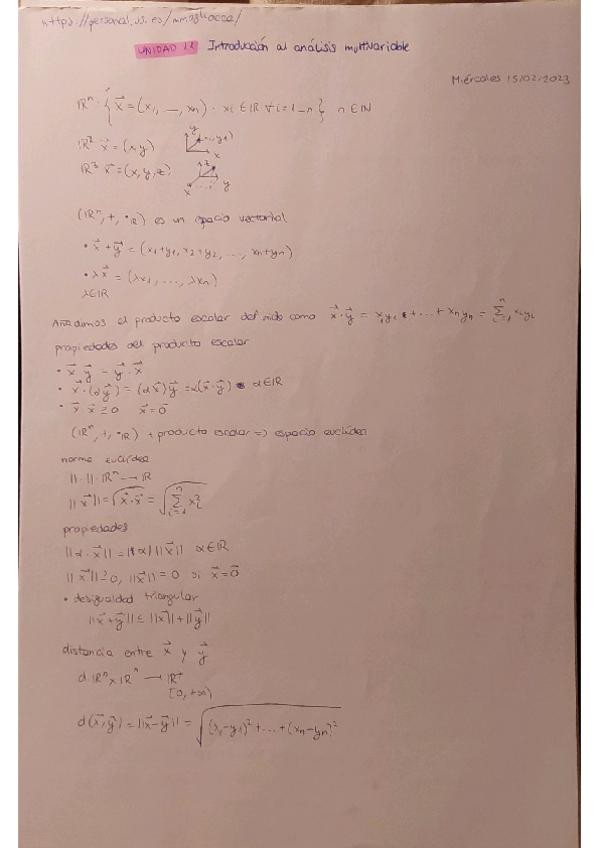 UNIDAD 12 Introducción al análisis multivariable
Miércoles 15/02/2023
ℝⁿ = { x⃗ = (x₁, ..., xₙ) · xᵢ ∈ ℝ ∀ i = 1 _ n } n ∈ ℕ
ℝ² x⃗ = (x, y)
ℝ³ x⃗ = (x, y, z)
(ℝⁿ, +, ·ℝ) es un espacio vectorial
• x⃗ + y⃗ = (x₁+y₁, x₂+y₂, ..., xₙ+yₙ)
• λx⃗ = (λx₁, ..., λxₙ)
λ∈ℝ
Añadimos el producto escalar definido como x⃗·y⃗ = x₁y₁ + ... + xₙyₙ = Σⁿᵢ₌₁ xᵢyᵢ
propiedades del producto escalar
• x⃗ y⃗ = y⃗ · x⃗
• x⃗·(αy⃗) = (αx⃗)y⃗ = α(x⃗·y⃗) α∈ℝ
• x⃗ x⃗ ≥ 0 x⃗ = 0⃗
(ℝⁿ, +, ·ℝ) + producto escalar => espacio euclídeo
norma euclídea
||·|| · ℝⁿ → ℝ
||x⃗|| = √(x⃗·x⃗) = √(Σⁿᵢ₌₁ xᵢ²)
propiedades
||α·x⃗|| = |α| ||x⃗|| α∈ℝ
||x⃗|| ≥ 0, ||x⃗|| = 0 si x⃗ = 0⃗
• desigualdad triangular
||x⃗+y⃗|| ≤ ||x⃗|| + ||y⃗||
distancia entre x⃗ y y⃗
d ℝⁿ x ℝⁿ → ℝ⁺
[0, +∞)
d(x⃗, y⃗) = ||x⃗-y⃗|| = √((x₁-y₁)² + ... + (xₙ-yₙ)²)